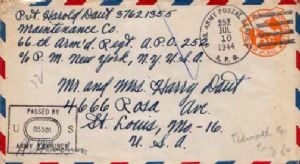 Pvt. Harold Daut 37621355
Maintenance Co.
66th Arm'd. Regt. A.P.O. 252
℅ P.M. New York, N.Y. U.S.A.
U.S. ARMY POSTAL
252
JUL
16
1944
A.P.O.
Mr. and Mrs. Harry Daut
4666 Rosa Ave.
St. Louis, Mo.-16.
U.S.A.
PASSED BY
U 05501 S
ARMY EXAMINER